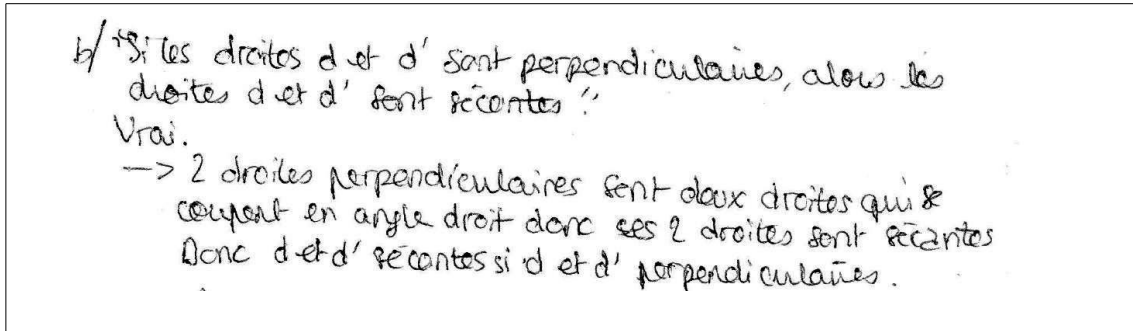 b/ "Si les droites d et d' sont perpendiculaires, alors les
droites d et d' sont sécantes"
Vrai.
—> 2 droites perpendiculaires sont deux droites qui se
coupent en angle droit donc ses 2 droites sont sécantes
Donc d et d' sécantes si d et d' perpendiculaires.